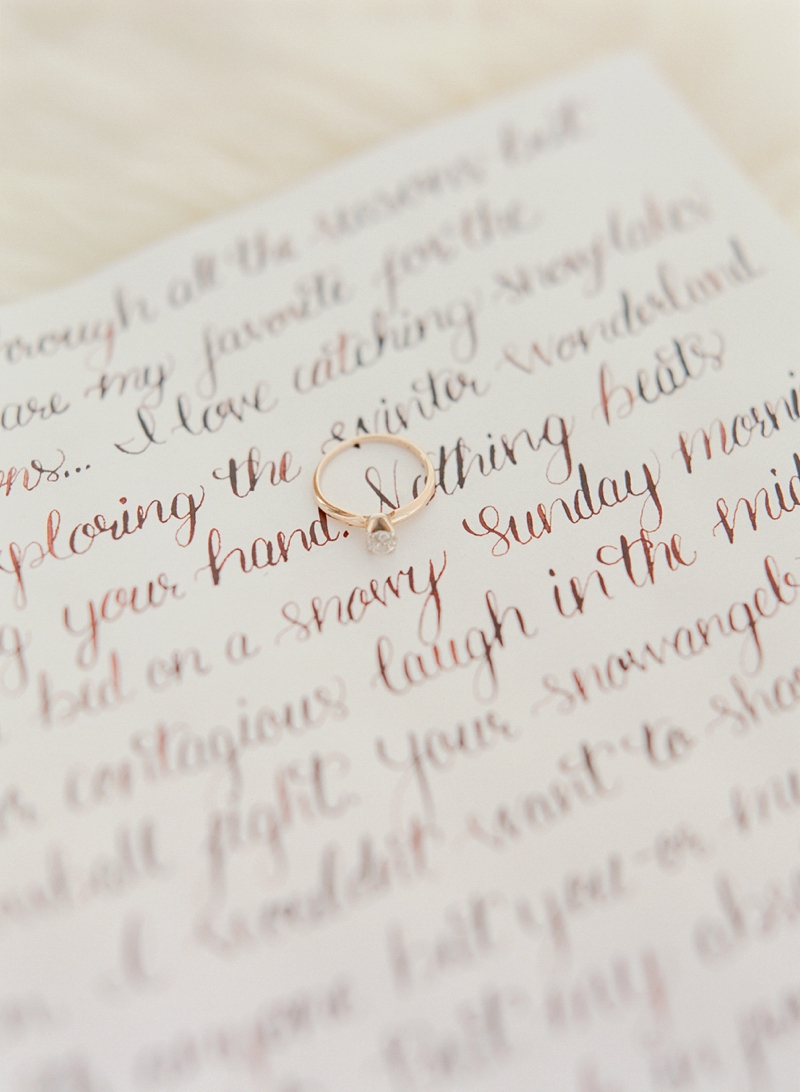 through all the seasons but
are my favorite for the
I love catching snowflakes
exploring the winter wonderland
your hand. Nothing beats
bed on a snowy Sunday morni
contagious laugh in the mid
fight your snowangels
I wouldn't want to sha
anyone but you or my
but my abs
in